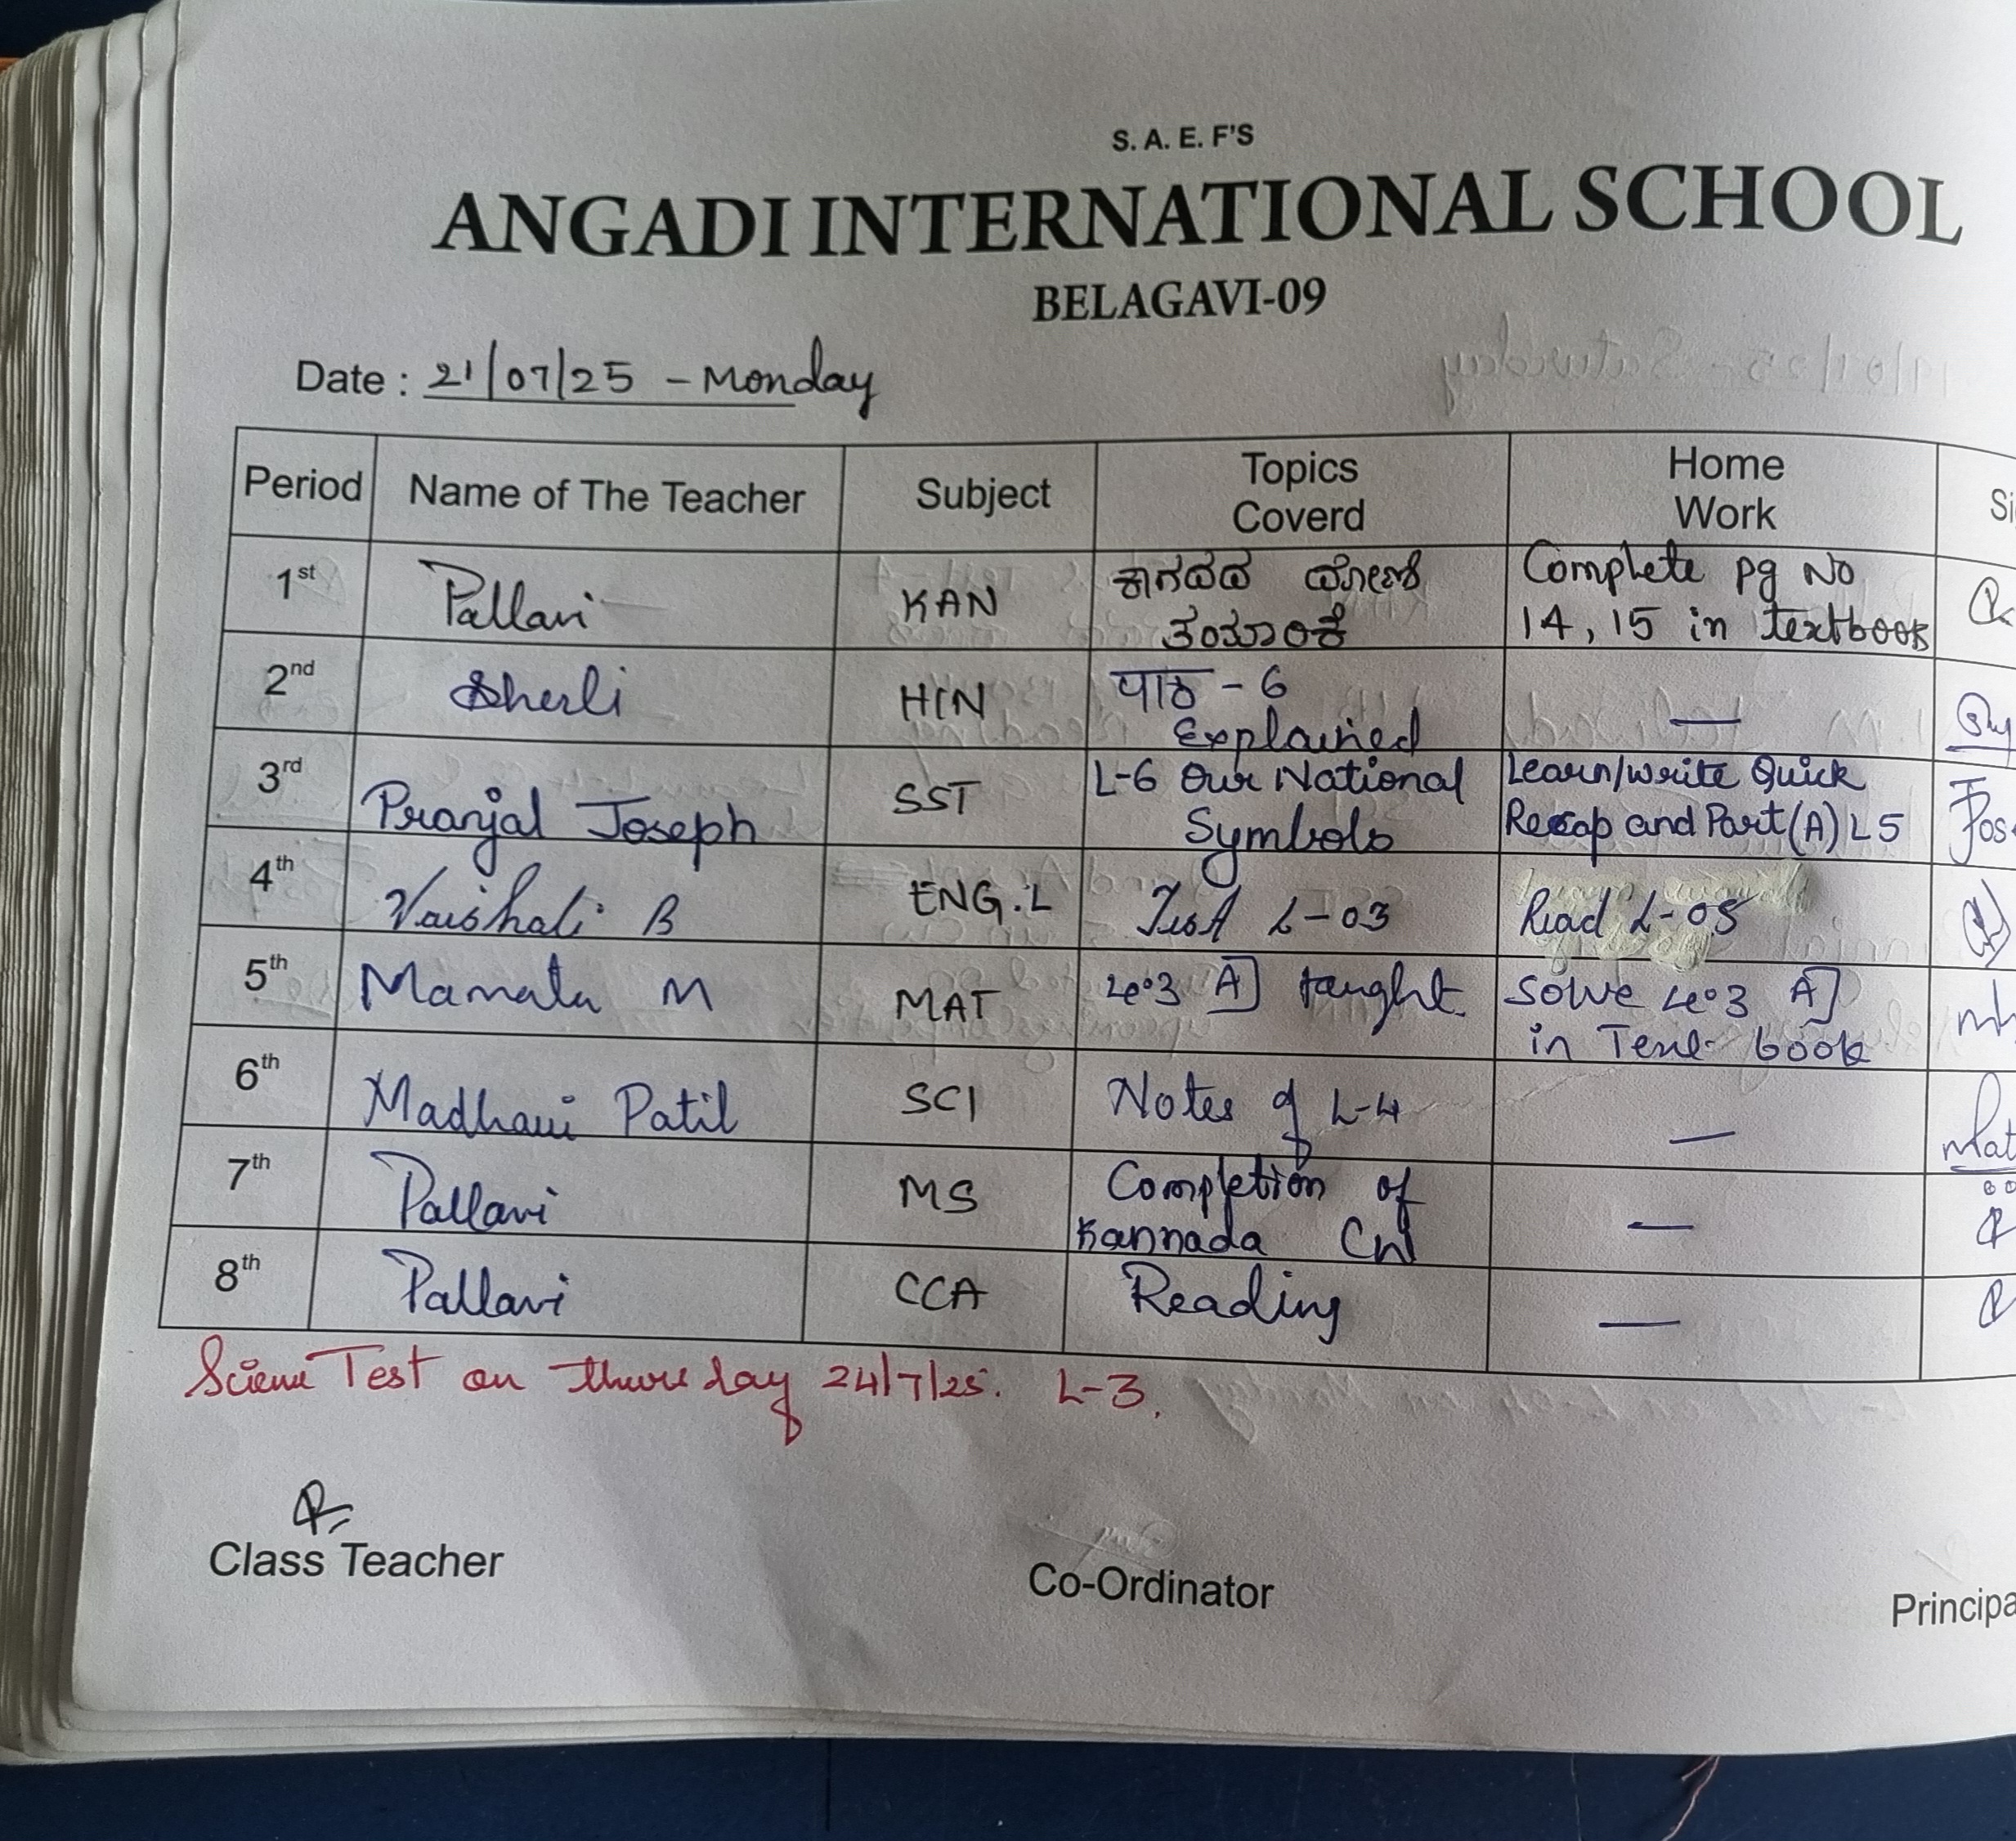 S. A. E. F'S
ANGADI INTERNATIONAL SCHOOL
BELAGAVI-09
Date : 21/07/25 - Monday
Period Name of The Teacher Subject Topics Coverd Home Work
1st Pallavi KAN ಕಾಗದದ ದೋಣಿ Complete pg No
14, 15 in textbook
2nd Sherli HIN पाठ - 6 —
Explained
3rd Pranjal Joseph SST L-6 Our National Learn/write Quick
Symbols Recap and Part(A) L5
4th Vaishali B ENG.L Test L-03 Read L-05
5th Mamata M MAT Le:3 A] taught. Solve Le:3 A]
in Text book
6th Madhavi Patil SCI Notes of L-4 —
7th Pallavi MS Completion of —
Kannada CW
8th Pallavi CCA Reading —
Science Test on thursday 24/7/25. L-3.
Class Teacher
Co-Ordinator
Principa